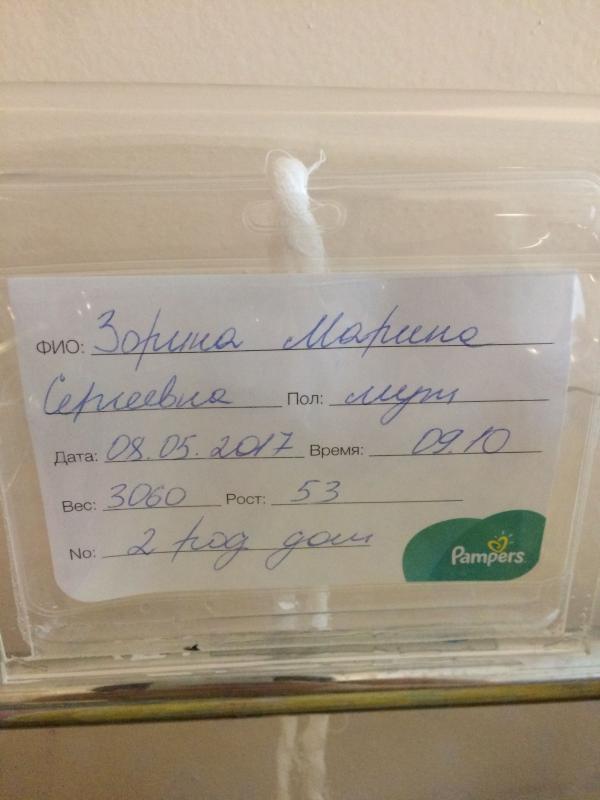 ФИО: Зорина Марина
Сергеевна Пол: муж
Дата: 08.05.2017 Время: 09.10
Вес: 3060 Рост: 53
No: 2 род дом
Pampers